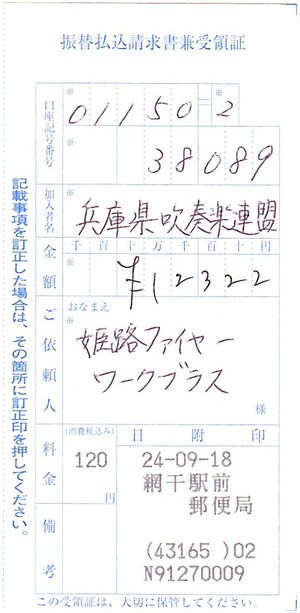 振替払込請求書兼受領証
口座記号番号
※
01150=2
※
38089
加入者名
※
兵庫県吹奏楽連盟
金額
千百十万千百十円
※
¥12322
ご依頼人
おなまえ
※
姫路ファイヤー
ワークブラス
様
料金
(消費税込み)
120
円
備考
日附印
24-09-18
網干駅前
郵便局
(43165)02
N91270009
記載事項を訂正した場合は、その箇所に訂正印を押してください。
この受領証は、大切に保管してください。